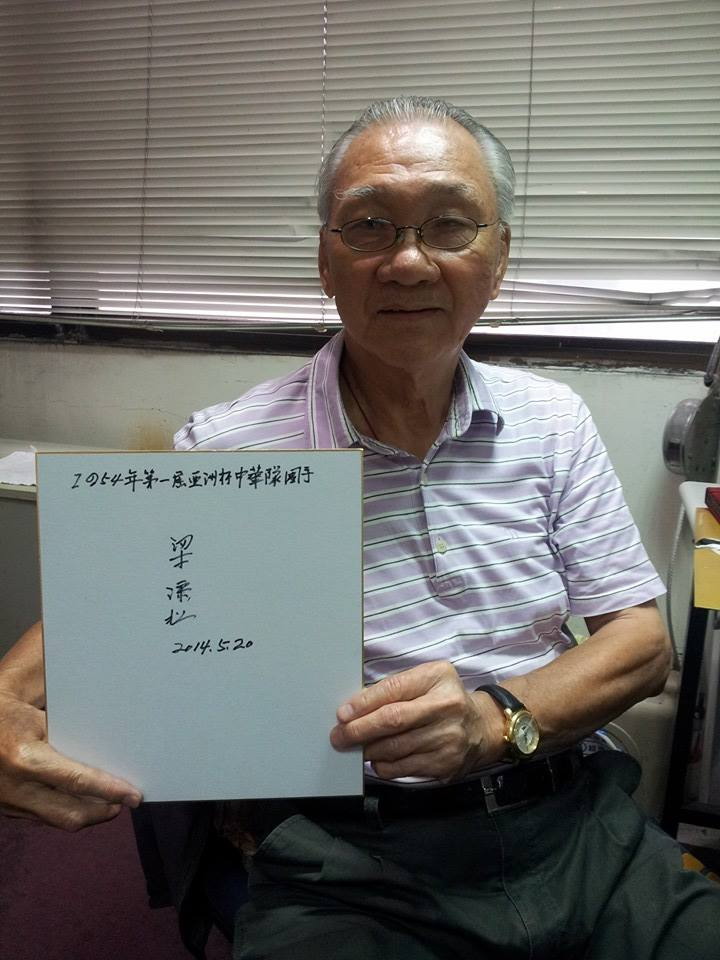 1954年第一届亜洲杯中華隊国手
梁松
2014.5.20